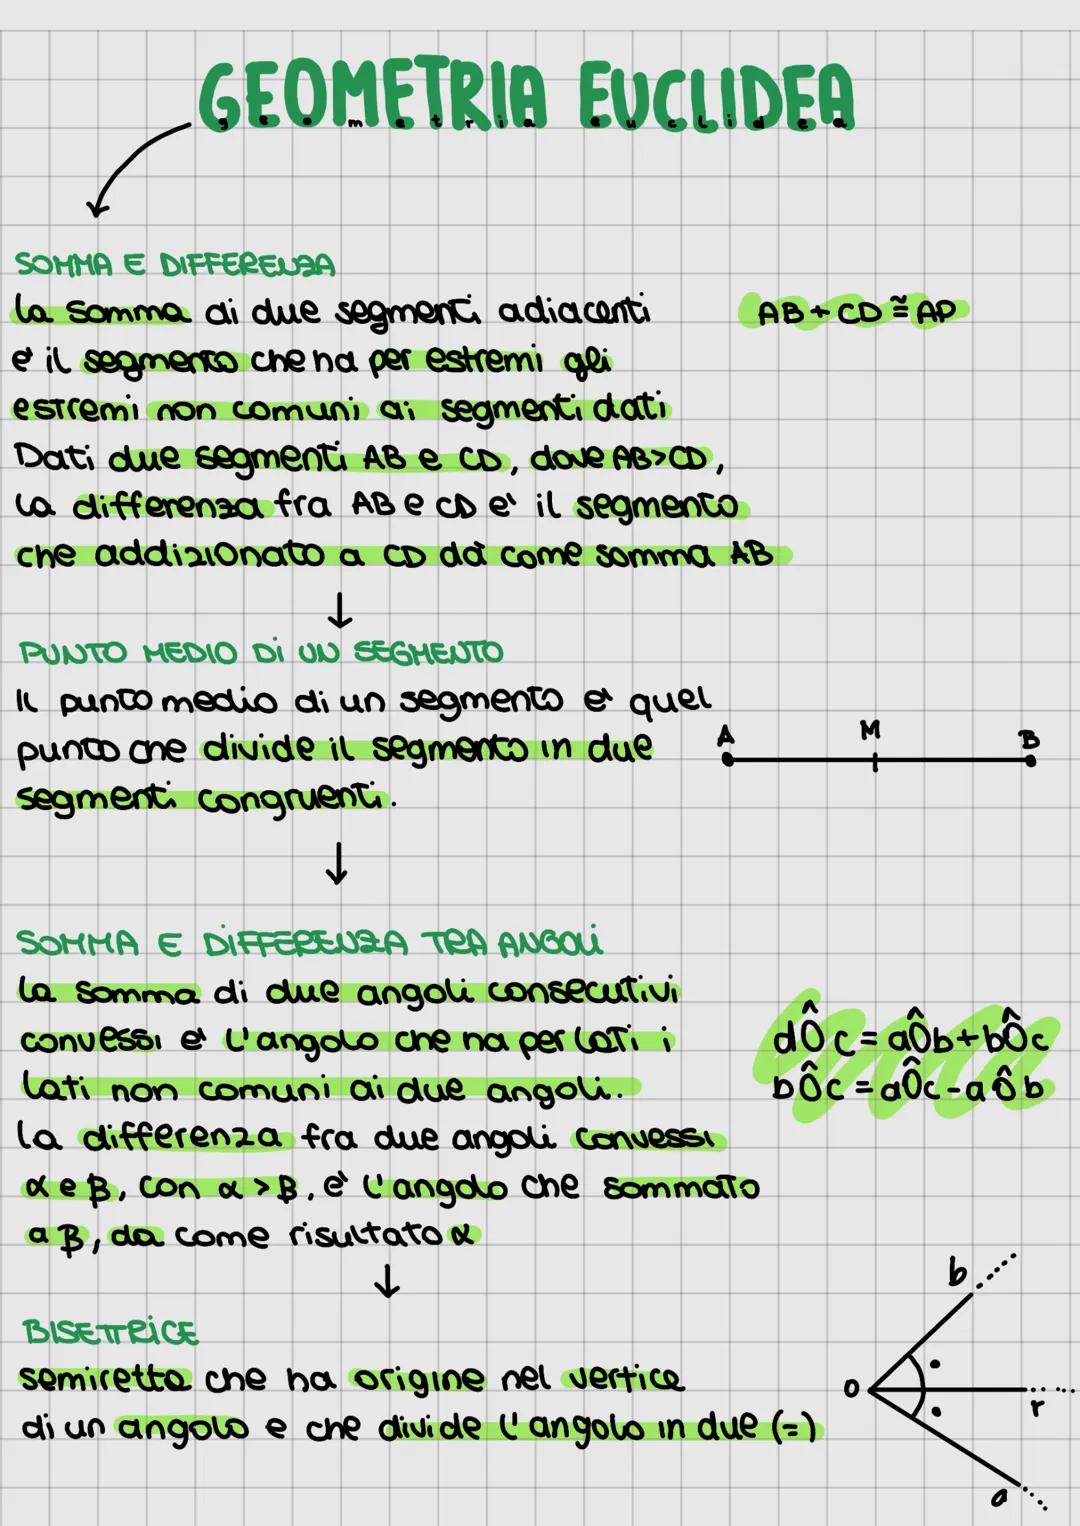 GEOMETRIA EUCLIDEA
geometria euclidea
SOMMA E DIFFERENZA
la somma di due segmenti adiacenti
AB + CD ≅ AD
e' il segmento che ha per estremi gli
estremi non comuni ai segmenti dati
Dati due segmenti AB e CD, dove AB>CD,
la differenza fra AB e CD e' il segmento
che addizionato a CD dà come somma AB
↓
PUNTO MEDIO Di UN SEGMENTO
Il punto medio di un segmento e' quel
punto che divide il segmento in due
segmenti congruenti.
A M B
↓
SOMMA E DIFFERENZA TRA ANGOLi
la somma di due angoli consecutivi
convessi e' l'angolo che ha per lati i
lati non comuni ai due angoli.
dÔc = aÔb + bÔc
bÔc = aÔc - aÔb
la differenza fra due angoli convessi
α e β, con α > β, e' l'angolo che sommato
a β, da come risultato α
↓
BISETTRiCE
semiretta che ha origine nel vertice
di un angolo e che divide l'angolo in due (=)
b
O
r
a